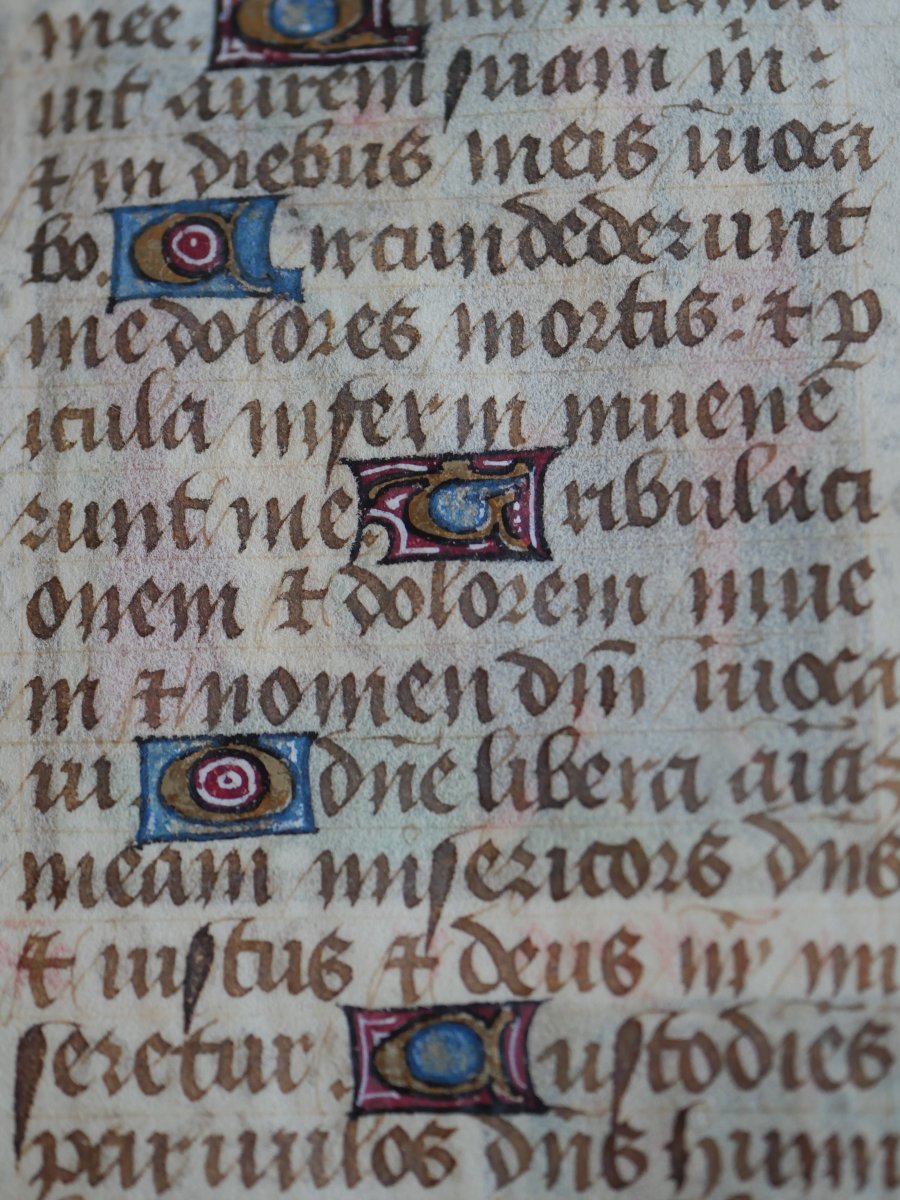 mee. Quia inclina
uit aurem suam m̄:
⁊ in diebus meis īuoca
bo. Circundederunt
me dolores mortis: ⁊ ꝑ
icula inferni inuenē
runt me. Tribulaci
onem ⁊ dolorem inue
ni ⁊ nomen dn̄i īuoca
ui. O dn̄e libera aīā
meam misericors dn̄s
⁊ iustus ⁊ deus nr̄ mi
seretur. Custodiēs
paruulos dn̄s humi